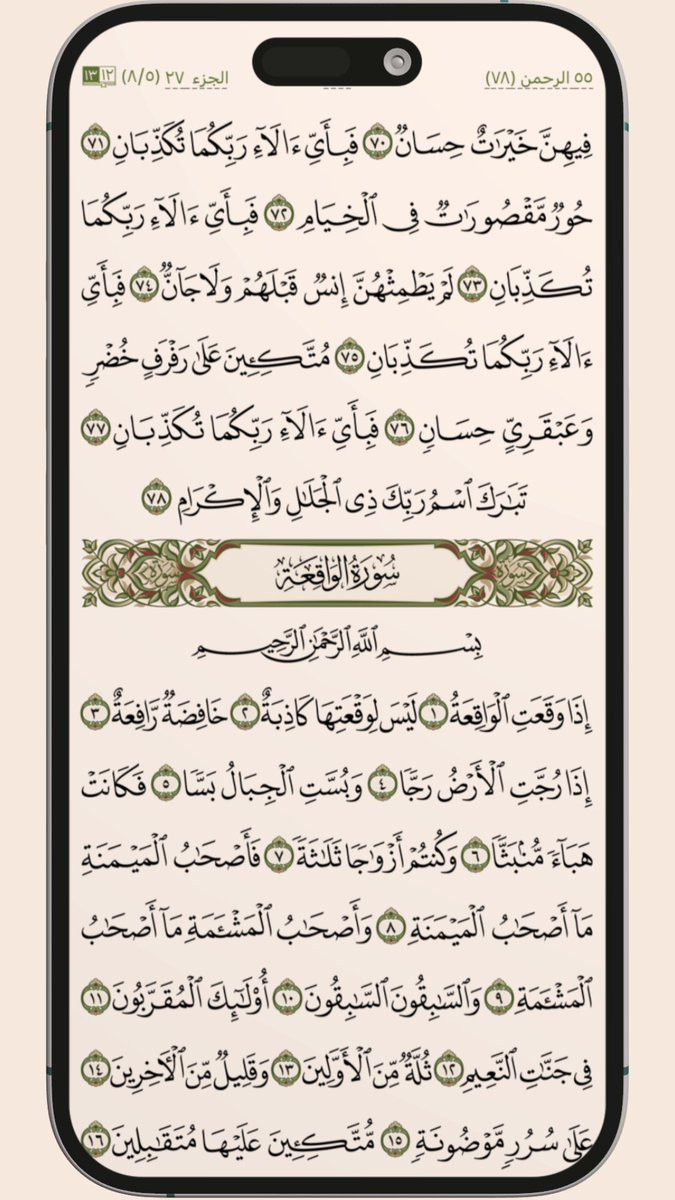 ٥٥ الرحمن (٧٨)
الجزء ٢٧ (٨/٥) ١٢ ١٣
فِيهِنَّ خَيْرَٰتٌ حِسَانٌ ٧٠ فَبِأَيِّ ءَالَآءِ رَبِّكُمَا تُكَذِّبَانِ ٧١
حُورٌ مَّقْصُورَٰتٌ فِى ٱلْخِيَامِ ٧٢ فَبِأَيِّ ءَالَآءِ رَبِّكُمَا
تُكَذِّبَانِ ٧٣ لَمْ يَطْمِثْهُنَّ إِنسٌ قَبْلَهُمْ وَلَا جَآنٌّ ٧٤ فَبِأَيِّ
ءَالَآءِ رَبِّكُمَا تُكَذِّبَانِ ٧٥ مُتَّكِـِٔينَ عَلَىٰ رَفْرَفٍ خُضْرٍ
وَعَبْقَرِيٍّ حِسَانٍ ٧٦ فَبِأَيِّ ءَالَآءِ رَبِّكُمَا تُكَذِّبَانِ ٧٧
تَبَٰرَكَ ٱسْمُ رَبِّكَ ذِى ٱلْجَلَٰلِ وَٱلْإِكْرَامِ ٧٨
سورة سُورَةُ الوَاقِعَةِ سورة
بِسْمِ ٱللَّهِ ٱلرَّحْمَٰنِ ٱلرَّحِيمِ
إِذَا وَقَعَتِ ٱلْوَاقِعَةُ ١ لَيْسَ لِوَقْعَتِهَا كَاذِبَةٌ ٢ خَافِضَةٌ رَّافِعَةٌ ٣
إِذَا رُجَّتِ ٱلْأَرْضُ رَجًّا ٤ وَبُسَّتِ ٱلْجِبَالُ بَسًّا ٥ فَكَانَتْ
هَبَآءً مُّنۢبَثًّا ٦ وَكُنتُمْ أَزْوَٰجًا ثَلَٰثَةً ٧ فَأَصْحَٰبُ ٱلْمَيْمَنَةِ
مَآ أَصْحَٰبُ ٱلْمَيْمَنَةِ ٨ وَأَصْحَٰبُ ٱلْمَشْـَٔمَةِ مَآ أَصْحَٰبُ
ٱلْمَشْـَٔمَةِ ٩ وَٱلسَّٰبِقُونَ ٱلسَّٰبِقُونَ ١٠ أُو۟لَٰٓئِكَ ٱلْمُقَرَّبُونَ ١١
فِى جَنَّٰتِ ٱلنَّعِيمِ ١٢ ثُلَّةٌ مِّنَ ٱلْأَوَّلِينَ ١٣ وَقَلِيلٌ مِّنَ ٱلْـَٔاخِرِينَ ١٤
عَلَىٰ سُرُرٍ مَّوْضُونَةٍ ١٥ مُّتَّكِـِٔينَ عَلَيْهَا مُتَقَٰبِلِينَ ١٦